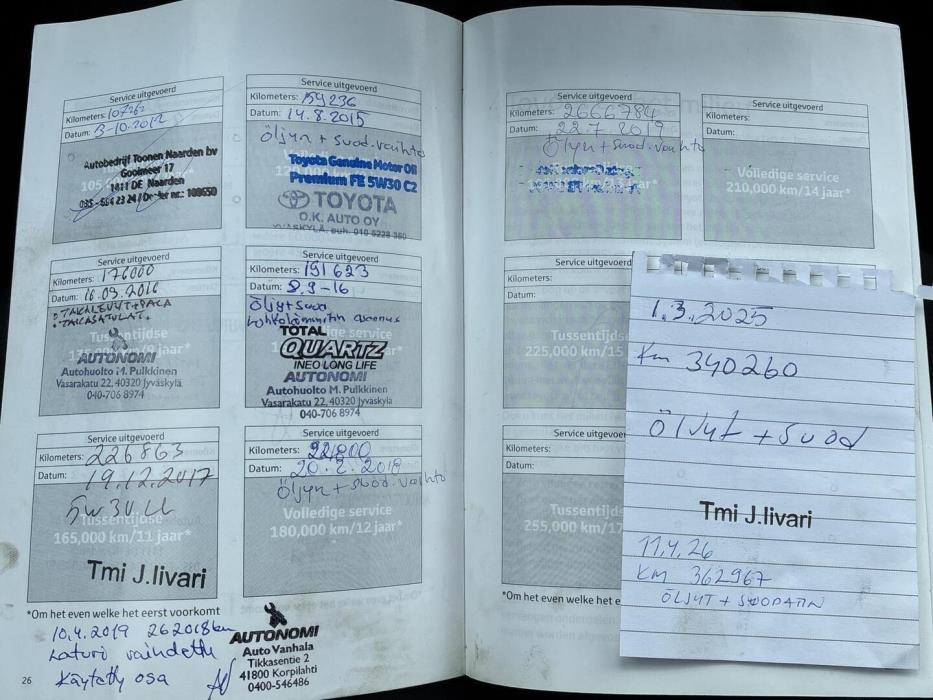 Service uitgevoerd
Kilometers: 107262
Datum: 3-10.2012
Autobedrijf Toonen Naarden bv
Gooimeer 17
1411 DE Naarden
Service uitgevoerd
Kilometers: 159236
Datum: 14.8.2015
Öljyn + Suod.vaihto
Toyota Genuine Motor Oil
Premium FE 5W30 C2
TOYOTA
O.K. AUTO OY
Service uitgevoerd
Kilometers: 176000
Datum: 16.03.2016
TAKALEVYT+PALA
Tussentijdse
AUTONOMI
Autohuolto M. Pulkkinen
Vasarakatu 22, 40320 Jyväskylä
040-706 8974
Service uitgevoerd
Kilometers: 191623
Datum: 8.9-16
Öljyt+Suod
TOTAL
QUARTZ
INEO LONG LIFE
AUTONOMI
Autohuolto M. Pulkkinen
Vasarakatu 22, 40320 Jyväskylä
040-706 8974
Service uitgevoerd
Kilometers: 226863
Datum: 19.12.2017
5w30
Tussentijdse
165,000 km/11 jaar*
Tmi J.Iivari
Service uitgevoerd
Kilometers:
Datum: 20.2.2018
Öljyn + suod.vaihto
Volledige service
180,000 km/12 jaar*
*Om het even welke het eerst voorkomt
10.4.2019 262018km
Laturi vaihdettu
Käytetty osa
AUTONOMI
Auto Vanhala
Tikkasentie 2
41800 Korpilahti
0400-546486
26
Service uitgevoerd
Kilometers: 2666784
Datum: 22.7.2019
Öljyn + Suod.vaihto
Service uitgevoerd
Kilometers:
Datum:
Volledige service
210,000 km/14 jaar*
Service uitgevoerd
Kilometers:
Datum:
Tussentijds
225,000 km/15
Service uitgevoer
Kilometers:
Datum:
Tussentijds
255,000 km/17
*Om het even welke het e
1.3.2025
Km 340260
Öljyt + Suod
Tmi J.Iivari
11.4.26
KM 362967
ÖLJYT + SUODATIN